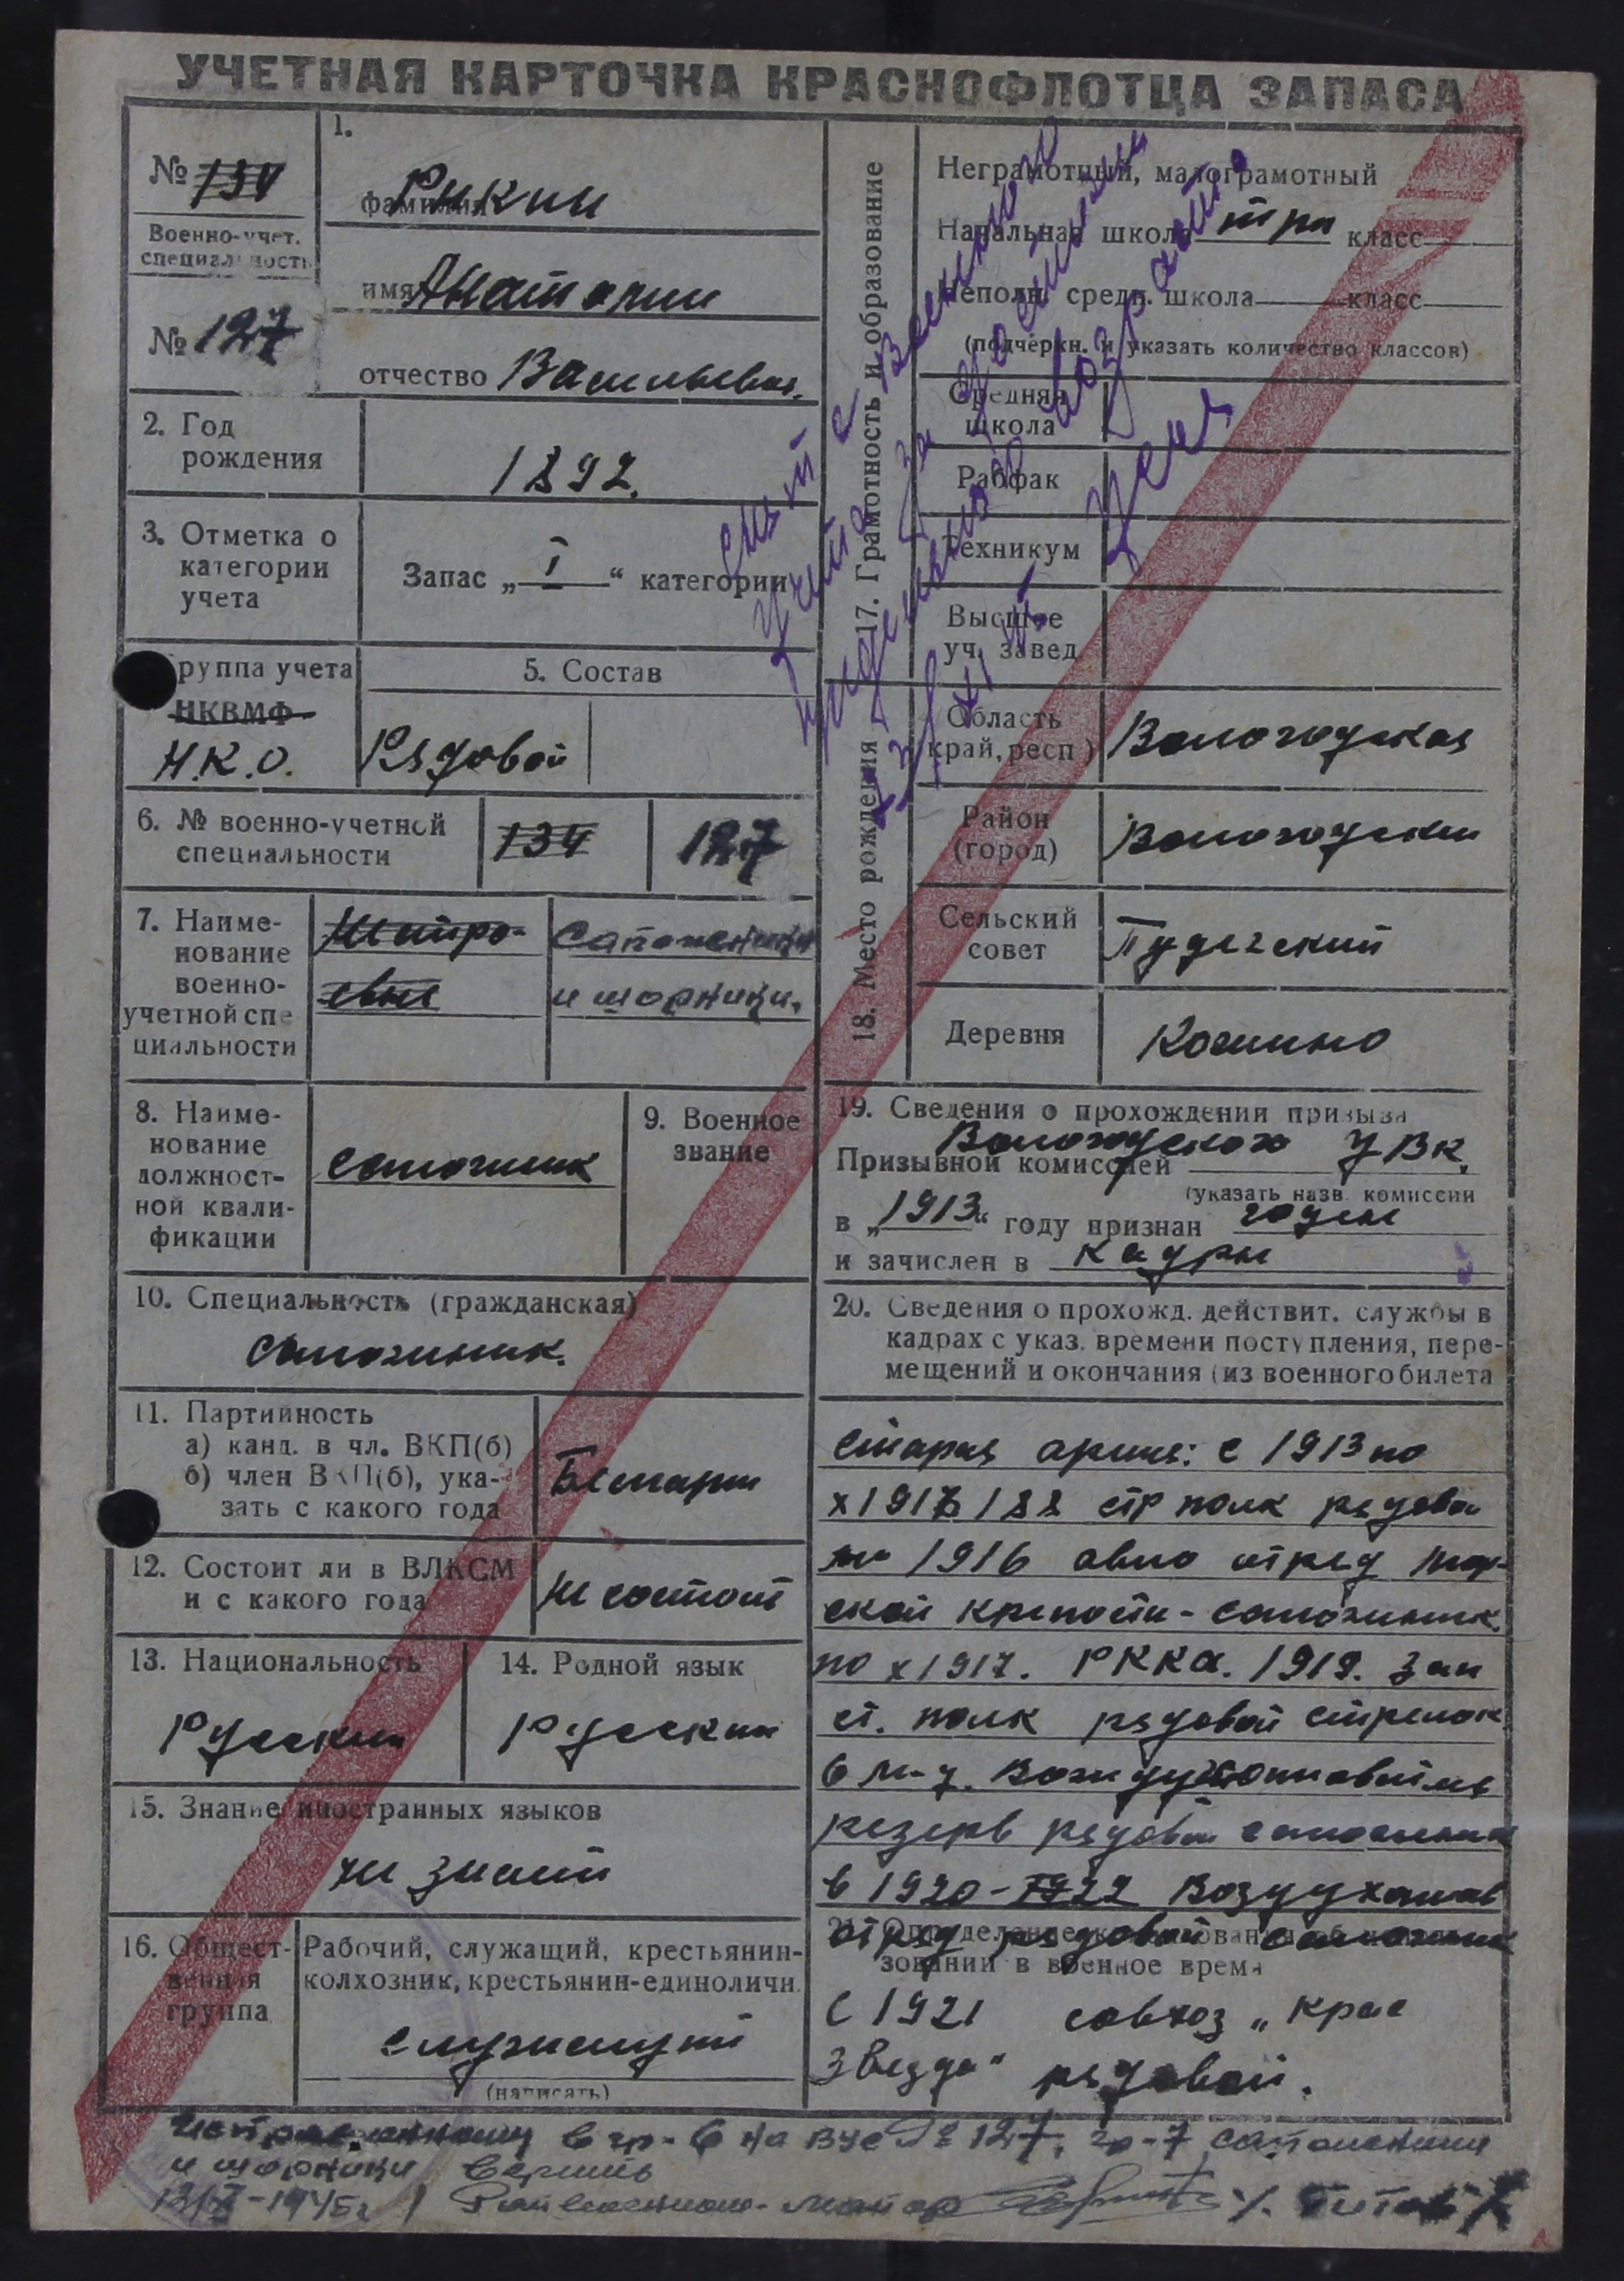 УЧЕТНАЯ КАРТОЧКА КРАСНОФЛОТЦА ЗАПАСА
№ 134
Военно-учет.
специальность
№ 127
1.
фамилия Рикин
имя Анатолии
отчество Васильевич.
2. Год
рождения
1892.
3. Отметка о
категории
учета
Запас „ I “ категории
руппа учета
НКВМФ
Н.К.О.
5. Состав
Рядовой
6. № военно-учетной
специальности
134
127
7. Наиме-
нование
военно-
учетной спе
циальности
сапожники
и шорники.
8. Наиме-
нование
должност-
ной квали-
фикации
сапожник
9. Военное
звание
10. Специальность (гражданская)
сапожник.
11. Партийность
а) канд. в чл. ВКП(б)
б) член ВКП(б), ука-
зать с какого года
Беспарти
12. Состоит ли в ВЛКСМ
и с какого года
Не состоит
13. Национальность
Русскии
14. Родной язык
Русскии
15. Знание иностранных языков
не знает
16. Общест-
венная
группа
Рабочий, служащий, крестьянин-
колхозник, крестьянин-единоличн.
служащий
(написать)
17. Грамотность и образование
Неграмотный, малограмотный
Начальная школа три класс
Неполн. средн. школа класс
(подчеркн. и указать количество классов)
Средняя
школа
Рабфак
Техникум
Высшее
уч. завед.
снят с воинского
учета за достижени
предельного возраста
18. Место рождения
Область
край, респ)
Вологодская
Район
(город)
Вологодскии
Сельский
совет
Деревня
19. Сведения о прохождении призыва
Призывной комиссией Вологодского УВК.
(указать назв. комиссии
в „1913“ году признан годен
и зачислен в кадры
20. Сведения о прохожд. действит. службы в
кадрах с указ. времени поступления, пере-
мещений и окончания (из военного билета
Старая армия: с 1913 по
188 стр полк рядовой
1916 авио отряд
ской крепости - сапожник.
по х 1917. РККА. 1919. Зап
ст. полк рядовой стрелок
резерв рядовой сапожник
в 1920-1922 Воздухоплав
отряд рядовой сапожник
зовании в военное время
С 1921 совхоз „Крас
Звезда“ рядовой.
в гр-6 на ВУС № 127, гр-7 сапожники
и шорники верить
1945г